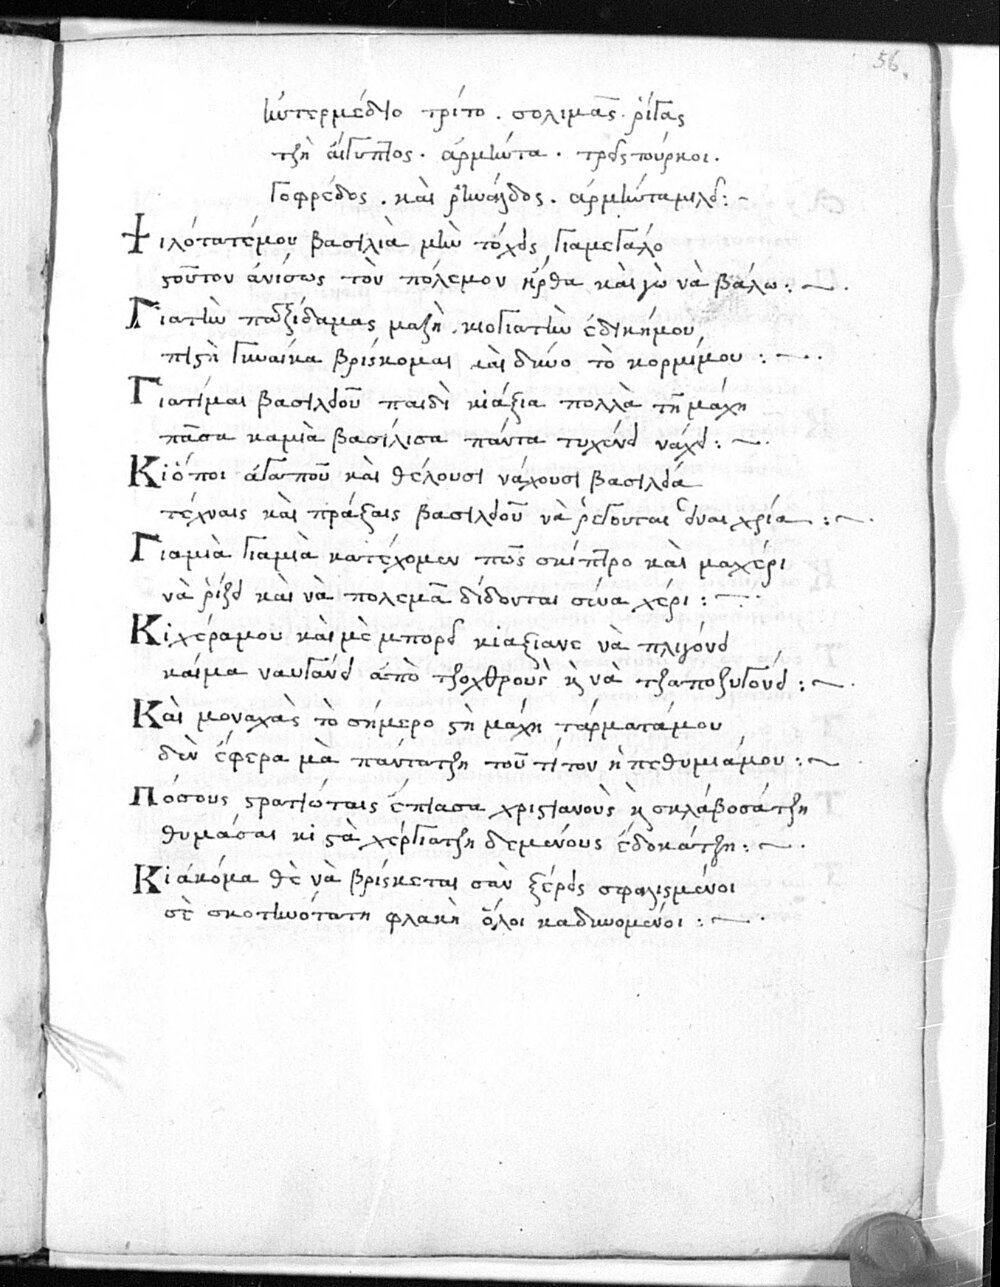 56.
ἰντερμέδιο τρίτο. σολιμὰς ῥίγας
τζῆ αἰγύπτος. ἀρμίντα. τρεῖς τούρκοι.
Γοφρέδος. καὶ ῥινάλδος. ἀρμίντα μιλεῖ:~
Ψιλότατέμου βασιλιὰ μὶν τόχεις γιαμεγάλο
ςοῦτον ἀνίσως τὸν πόλεμον ἦρθα καὶγὼ νὰ βάλω:~
Γιατὶν πατρίδαμας μαζὴ κιογιατὶν ἐδικήμου
πιςὴ γυναίκα βρίσκομαι καὶ δίνω τὸ κορμίμου:~
Γιατίμαι βασιλιοῦ παιδὶ κιάξια πολλὰ τῆ μάχη
πᾶσα καμιὰ βασίλισα πάντα τυχένει νάχει:~
Κιόποι ἀγαποῦ καὶ θέλουσι νάχουσι βασιλειά
τέχναις καὶ πράξαις βασιλειοῦ νὰ ῥέγουνται εἶναι χρία:~
Γιαμιὰ γιαμιὰ κατέχομεν πῶς σκίπτρο καὶ μαχέρι
νὰ ῥίζει καὶ νὰ πολεμᾶ δίδονται σένα χέρι:~
Κιχέραμου καιμὲ μπορεῖ κιαξιανε νὰ πλιγόνει
καίμα ναυγάνει ἀπὸ τζὀχθροὺς κ νὰ τζαποζυγόνει:~
Καὶ μοναχὰς το σήμερο ςὴ μάχη τάρματάμου
δὲν ἔφερα μὰ πάντατζη τοῦτ ἤτον ἡ πεθυμιάμου:~
Πόσους ςρατιώταις ἔπιασα χριςιανοὺς κ σκλάβοσάτζη
θυμάσαι κι ςὰ χέργιατζη δεμένους ἔδοκάτζη:~
Κιακόμα θὲ νὰ βρίσκεται σὰν ξέρεις σφαλισμένοι
σὲ σκοτινότατη φλακὴ ὅλοι καδινομένοι:~